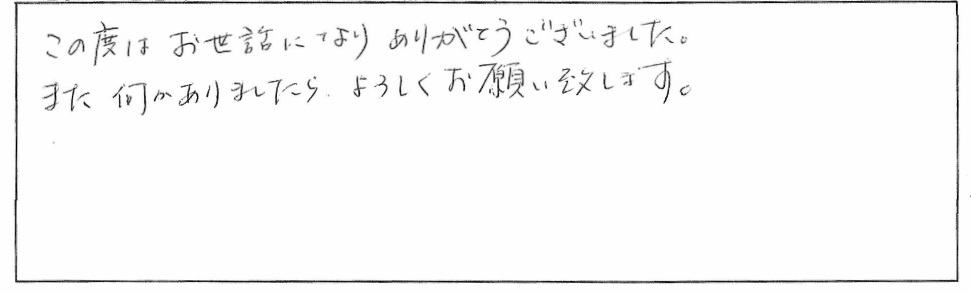 この度は お世話になり ありがとうございました。
また 何かありましたら、よろしくお願い致します。